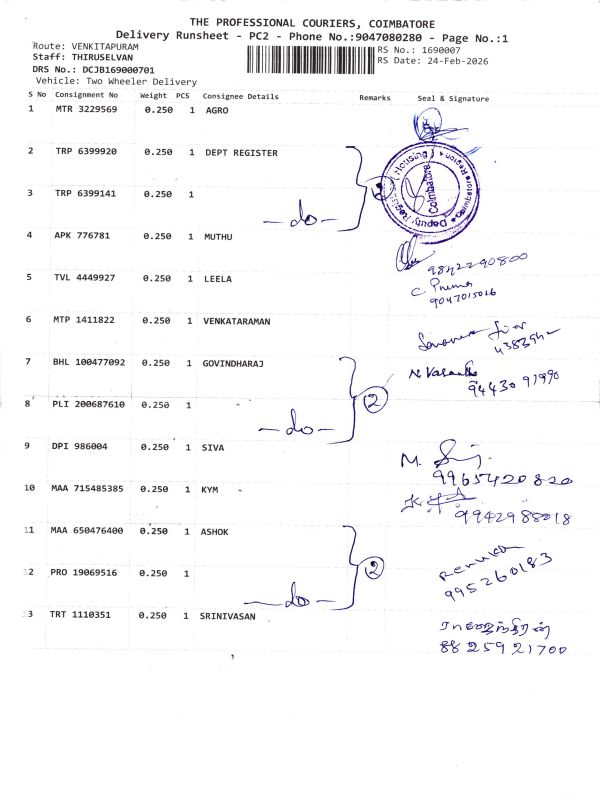 THE PROFESSIONAL COURIERS, COIMBATORE
Delivery Runsheet - PC2 - Phone No.:9047080280 - Page No.:1
Route: VENKITAPURAM
RS No.: 1690007
Staff: THIRUSELVAN
RS Date: 24-Feb-2026
DRS No.: DCJB169000701
Vehicle: Two Wheeler Delivery
S No Consignment No Weight PCS Consignee Details Remarks Seal & Signature
1 MTR 3229569 0.250 1 AGRO
2 TRP 6399920 0.250 1 DEPT REGISTER
3 TRP 6399141 0.250 1
-do-
Deputy Registrar (Housing)
Coimbatore Region
Coimbatore
4 APK 776781 0.250 1 MUTHU
9842290800
5 TVL 4449927 0.250 1 LEELA
C Prema
9047015016
6 MTP 1411822 0.250 1 VENKATARAMAN
7 BHL 100477092 0.250 1 GOVINDHARAJ
N. Vasantha
94430 91990
8 PLI 200687610 0.250 1
-do-
2
9 DPI 986004 0.250 1 SIVA
M.
9965420820
10 MAA 715485385 0.250 1 KYM
9942988018
11 MAA 650476400 0.250 1 ASHOK
Renuka
995260183
12 PRO 19069516 0.250 1
-do-
2
13 TRT 1110351 0.250 1 SRINIVASAN
8825921700